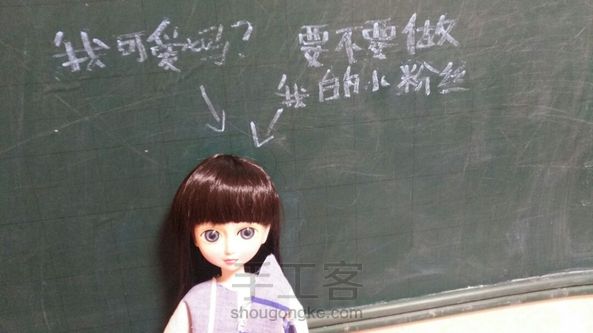 我可爱吗?
要不要做
我的小粉丝
手工客
shougongke.com